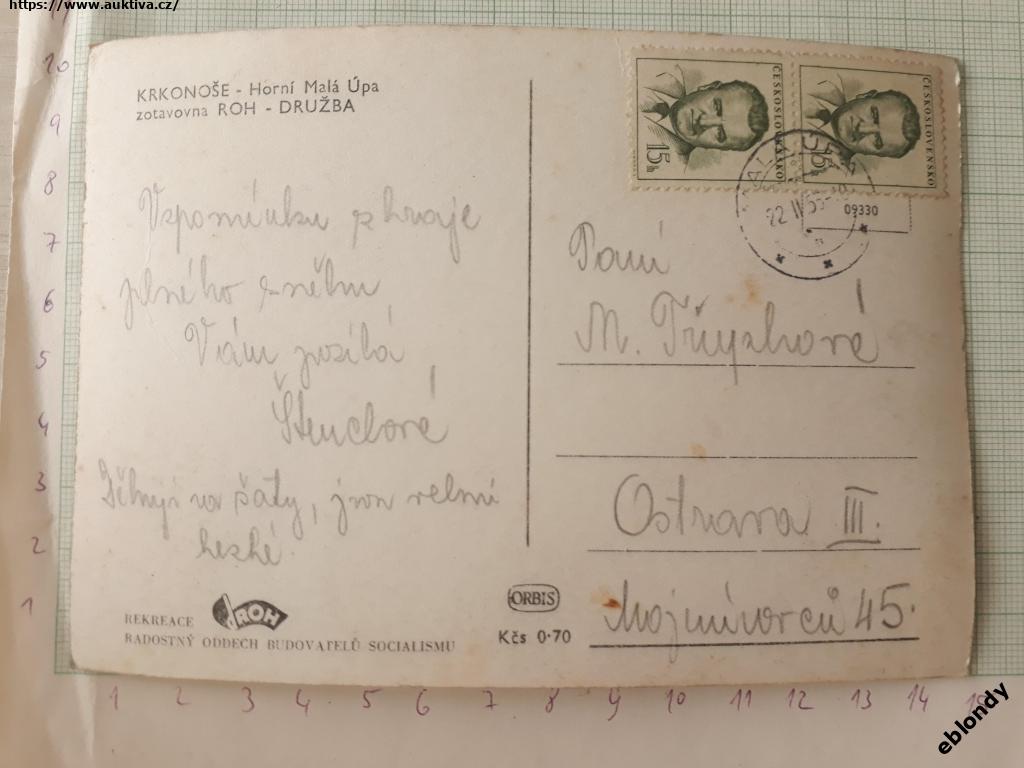 https://www.auktiva.cz/
KRKONOŠE - Horní Malá Úpa
zotavovna ROH - DRUŽBA
Vzpomínku z kraje
plného sněhu
Vám posílá
Štenclové
šaty, jsou velmi
hezké.
REKREACE ROH
RADOSTNÝ ODDECH BUDOVATELŮ SOCIALISMU
ORBIS
Kčs 0·70
ČESKOSLOVENSKO
15h
ČESKOSLOVENSKO
22 IV 55
09330
Paní
M. Třyskové
Ostrava III.
Mojmírovců 45.
11
10
9
8
7
6
5
4
3
2
1
1 2 3 4 5 6 7 8 9 10 11 12 13 14 15
eblondy